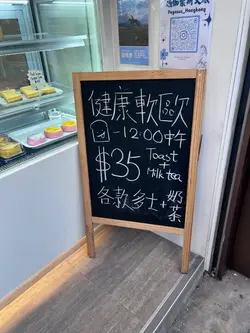 Pegasus_Hongkong
健康軟歐
-12:00中午
$35 Toast
+
Milk tea
各款多士+奶茶